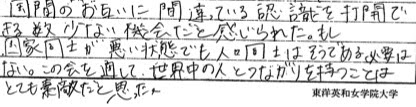 国間のお互いに間違っている認識を打開で
きる数少ない機会だと感じられた。もし
国家同士が悪い状態でも人同士はそうである必要は
ない。この会を通して、世界中の人とつながりを持つことは
とても素敵だと思った。
東洋英和女学院大学